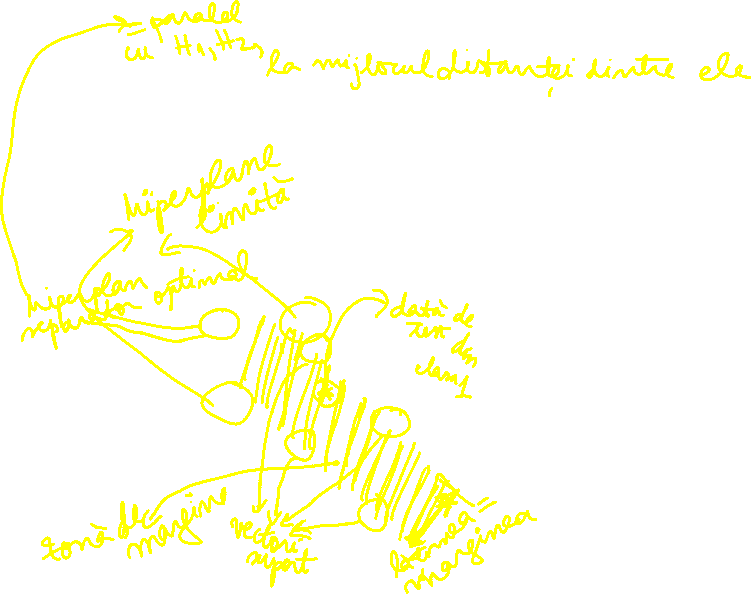 = paralel
cu H1, H2,
la mijlocul distanței dintre ele
hiperplane
limită
hiperplan optimal
separator
dată de
test din
clasa 1
zonă de
margine
vectori
suport
lățimea =
marginea